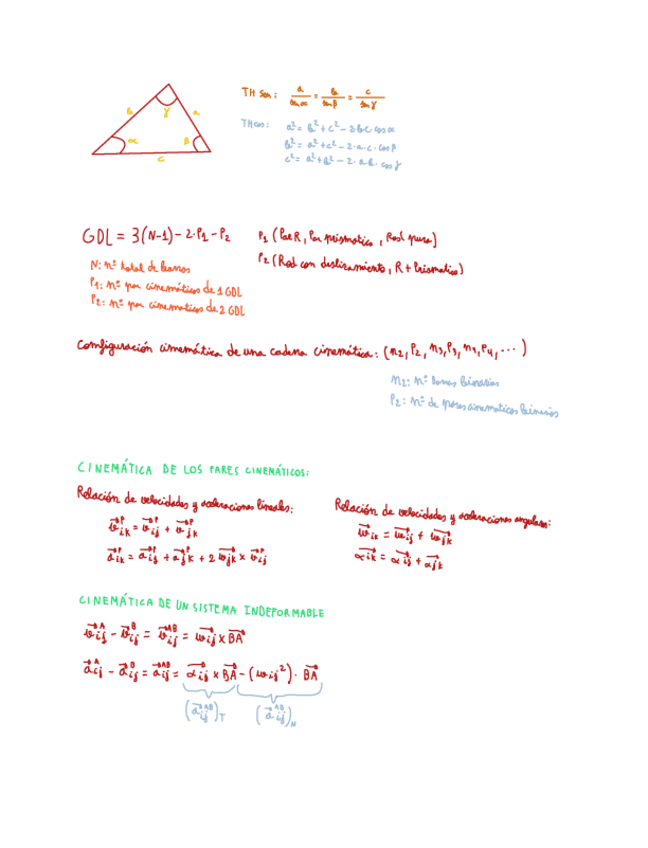 b
γ
a
α
β
c
TH Sen: a/senα = b/senβ = c/senγ
THcos: a² = b² + c² - 2·b·c·cosα
b² = a² + c² - 2·a·c·cosβ
c² = a² + b² - 2·a·b·cosγ
GDL = 3(N-1) - 2·P₁ - P₂
P₁ (Par R, Par prismático, Rod pura)
P₂ (Rod con deslizamiento, R + Prismatico)
N: nº total de barras
P₁: nº par cinemáticos de 1 GDL
P₂: nº par cinematicos de 2 GDL
Configuración cinemática de una cadena cinemática: (n₂, P₂, n₃, P₃, n₄, P₄, ...)
n₂: nº barras binarias
P₂: nº de pares cinematicos binarios
CINEMÁTICA DE LOS PARES CINEMÁTICOS:
Relación de velocidades y aceleraciones lineales:
Relación de velocidades y aceleraciones angulares:
v⃗ᴾik = v⃗ᴾij + v⃗ᴾjk
ω⃗ik = ω⃗ij + ω⃗jk
a⃗ᴾik = a⃗ᴾij + a⃗ᴾjk + 2 ω⃗jk × v⃗ᴾij
α⃗ik = α⃗ij + α⃗jk
CINEMÁTICA DE UN SISTEMA INDEFORMABLE
v⃗ᴬij - v⃗ᴮij = v⃗ᴬᴮij = ω⃗ij × BA⃗
a⃗ᴬij - a⃗ᴮij = a⃗ᴬᴮij = α⃗ij × BA⃗ - (ωij²) · BA⃗
(a⃗ᴬᴮij)T (a⃗ᴬᴮij)N